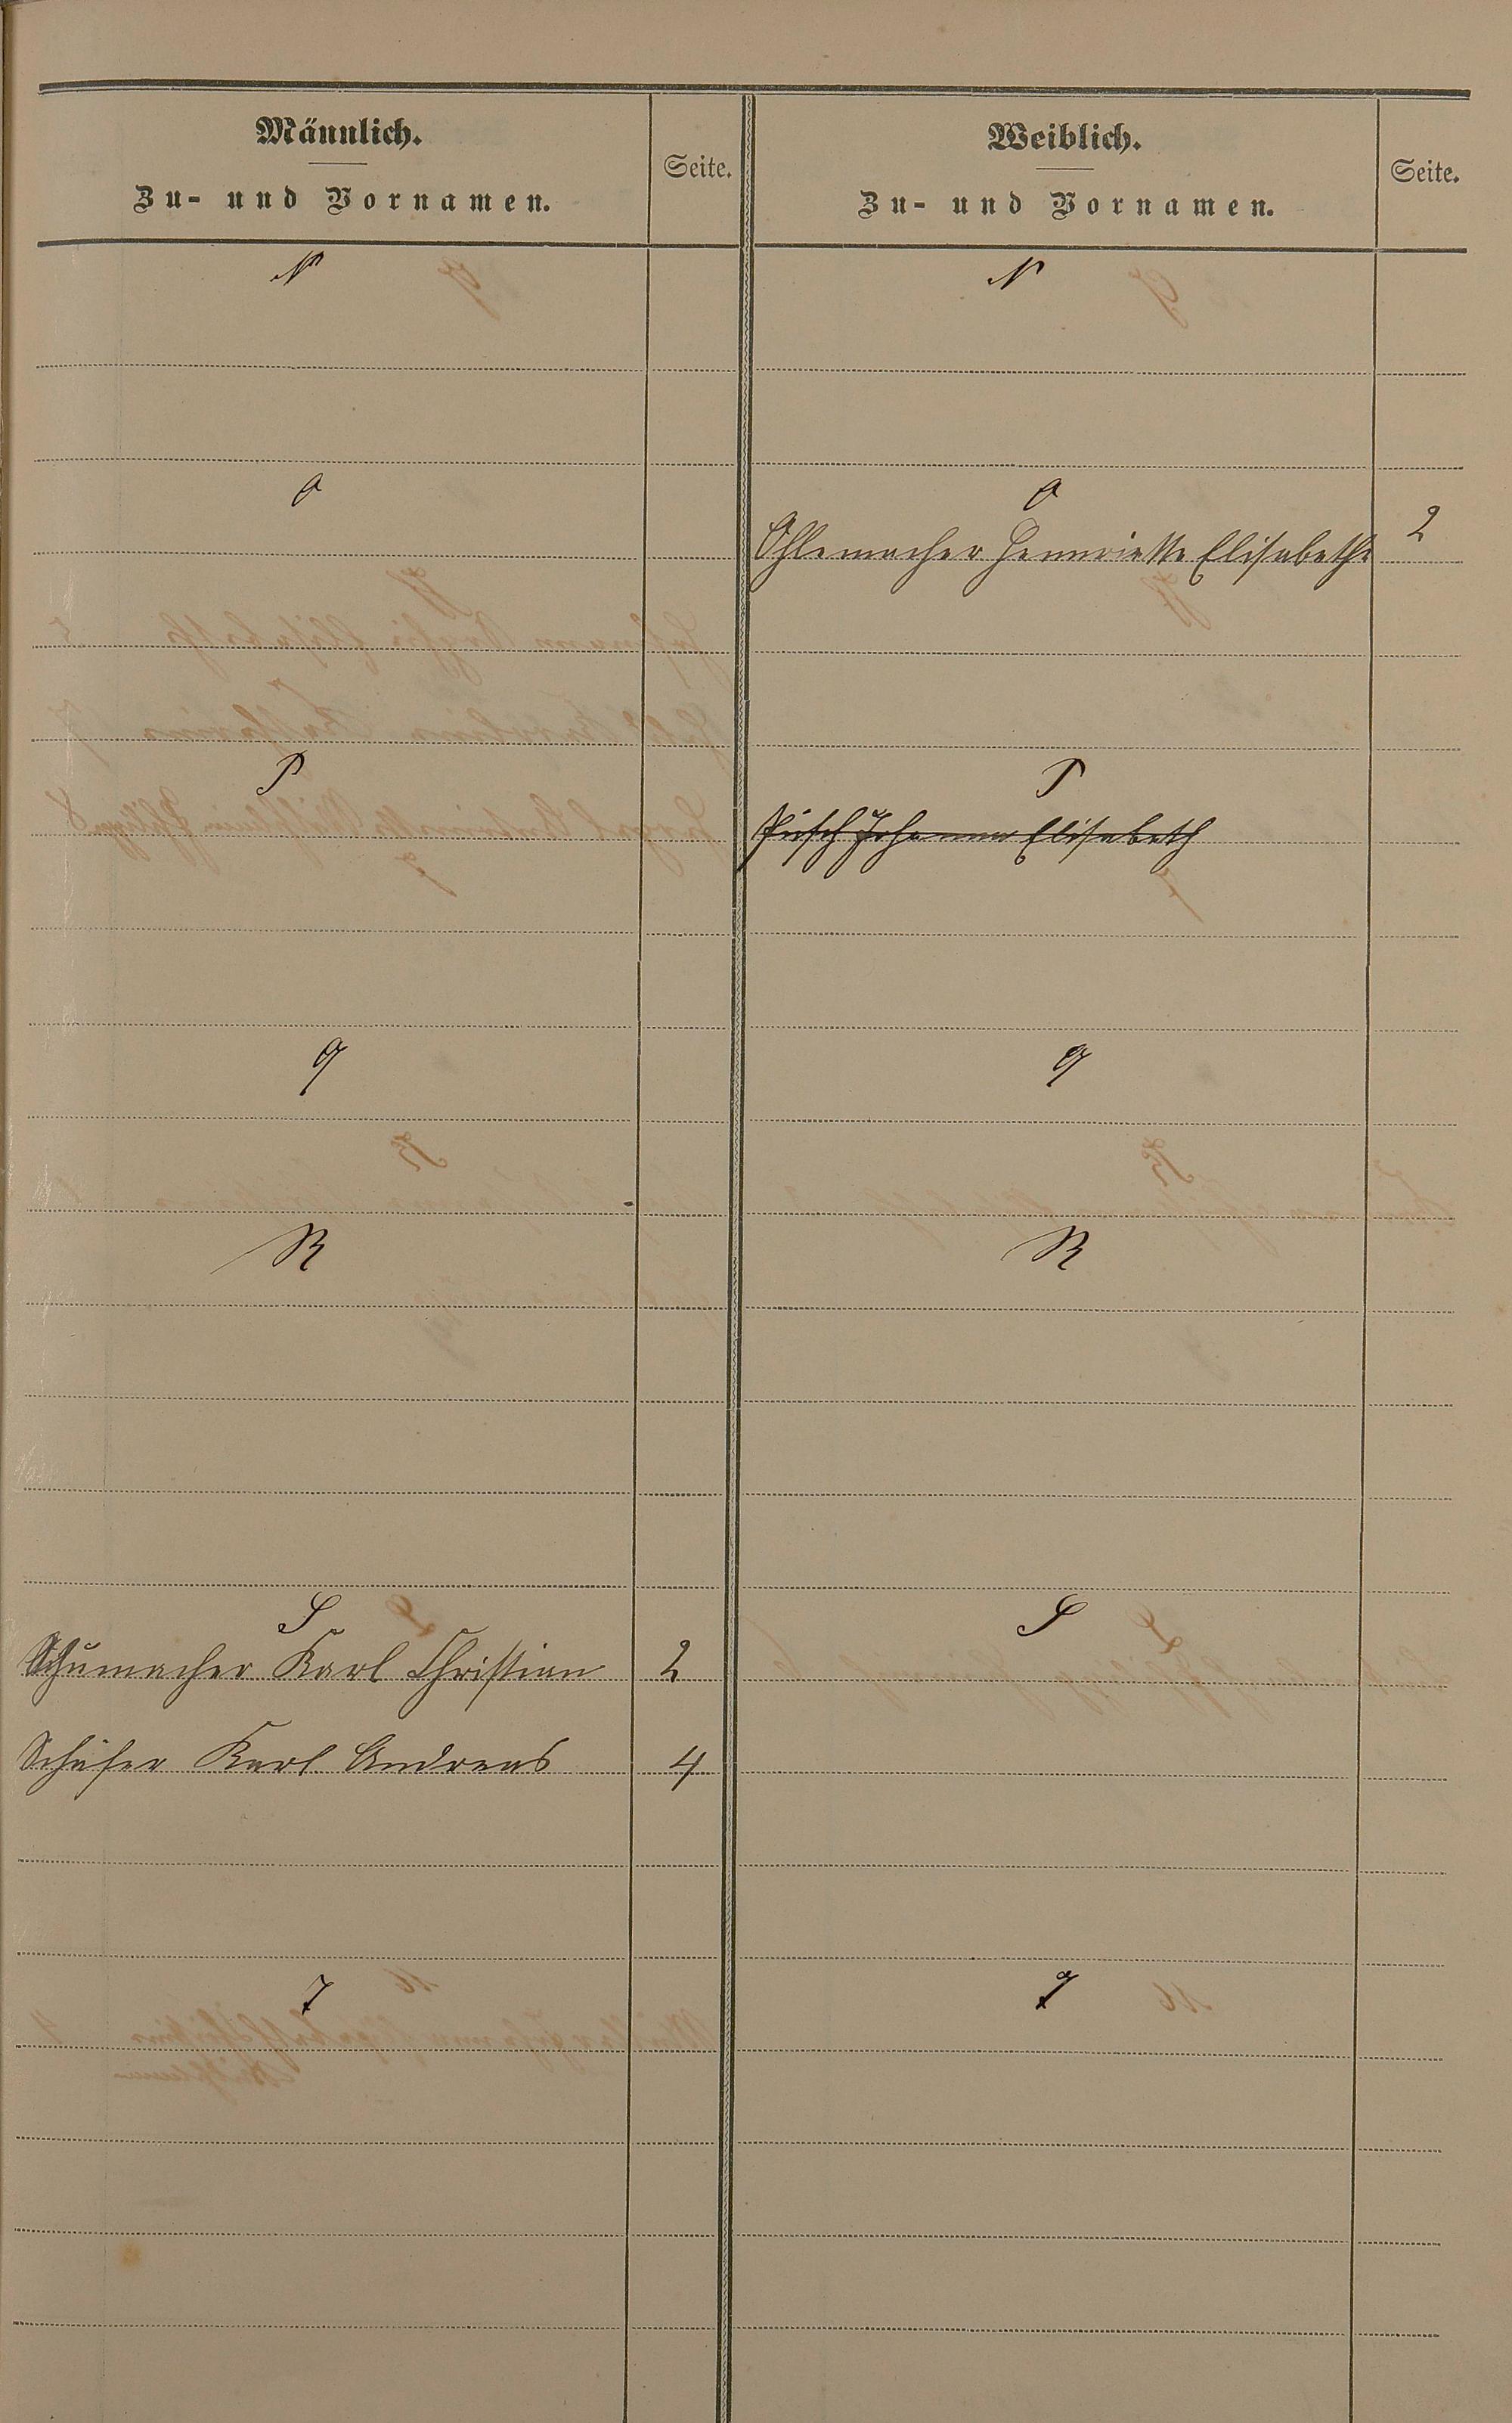 Männlich.
Zu- und Vornamen.
Seite.
Weiblich.
Zu- und Vornamen.
Seite.
N
N
O
O
Ohlemacher Hennriette Elisabethe 2
P
P
Johanna Elisabeth
Q
Q
R
R
S
S
Schumacher Karl Christian 2
Schäfer Karl Andreas 4
T
T